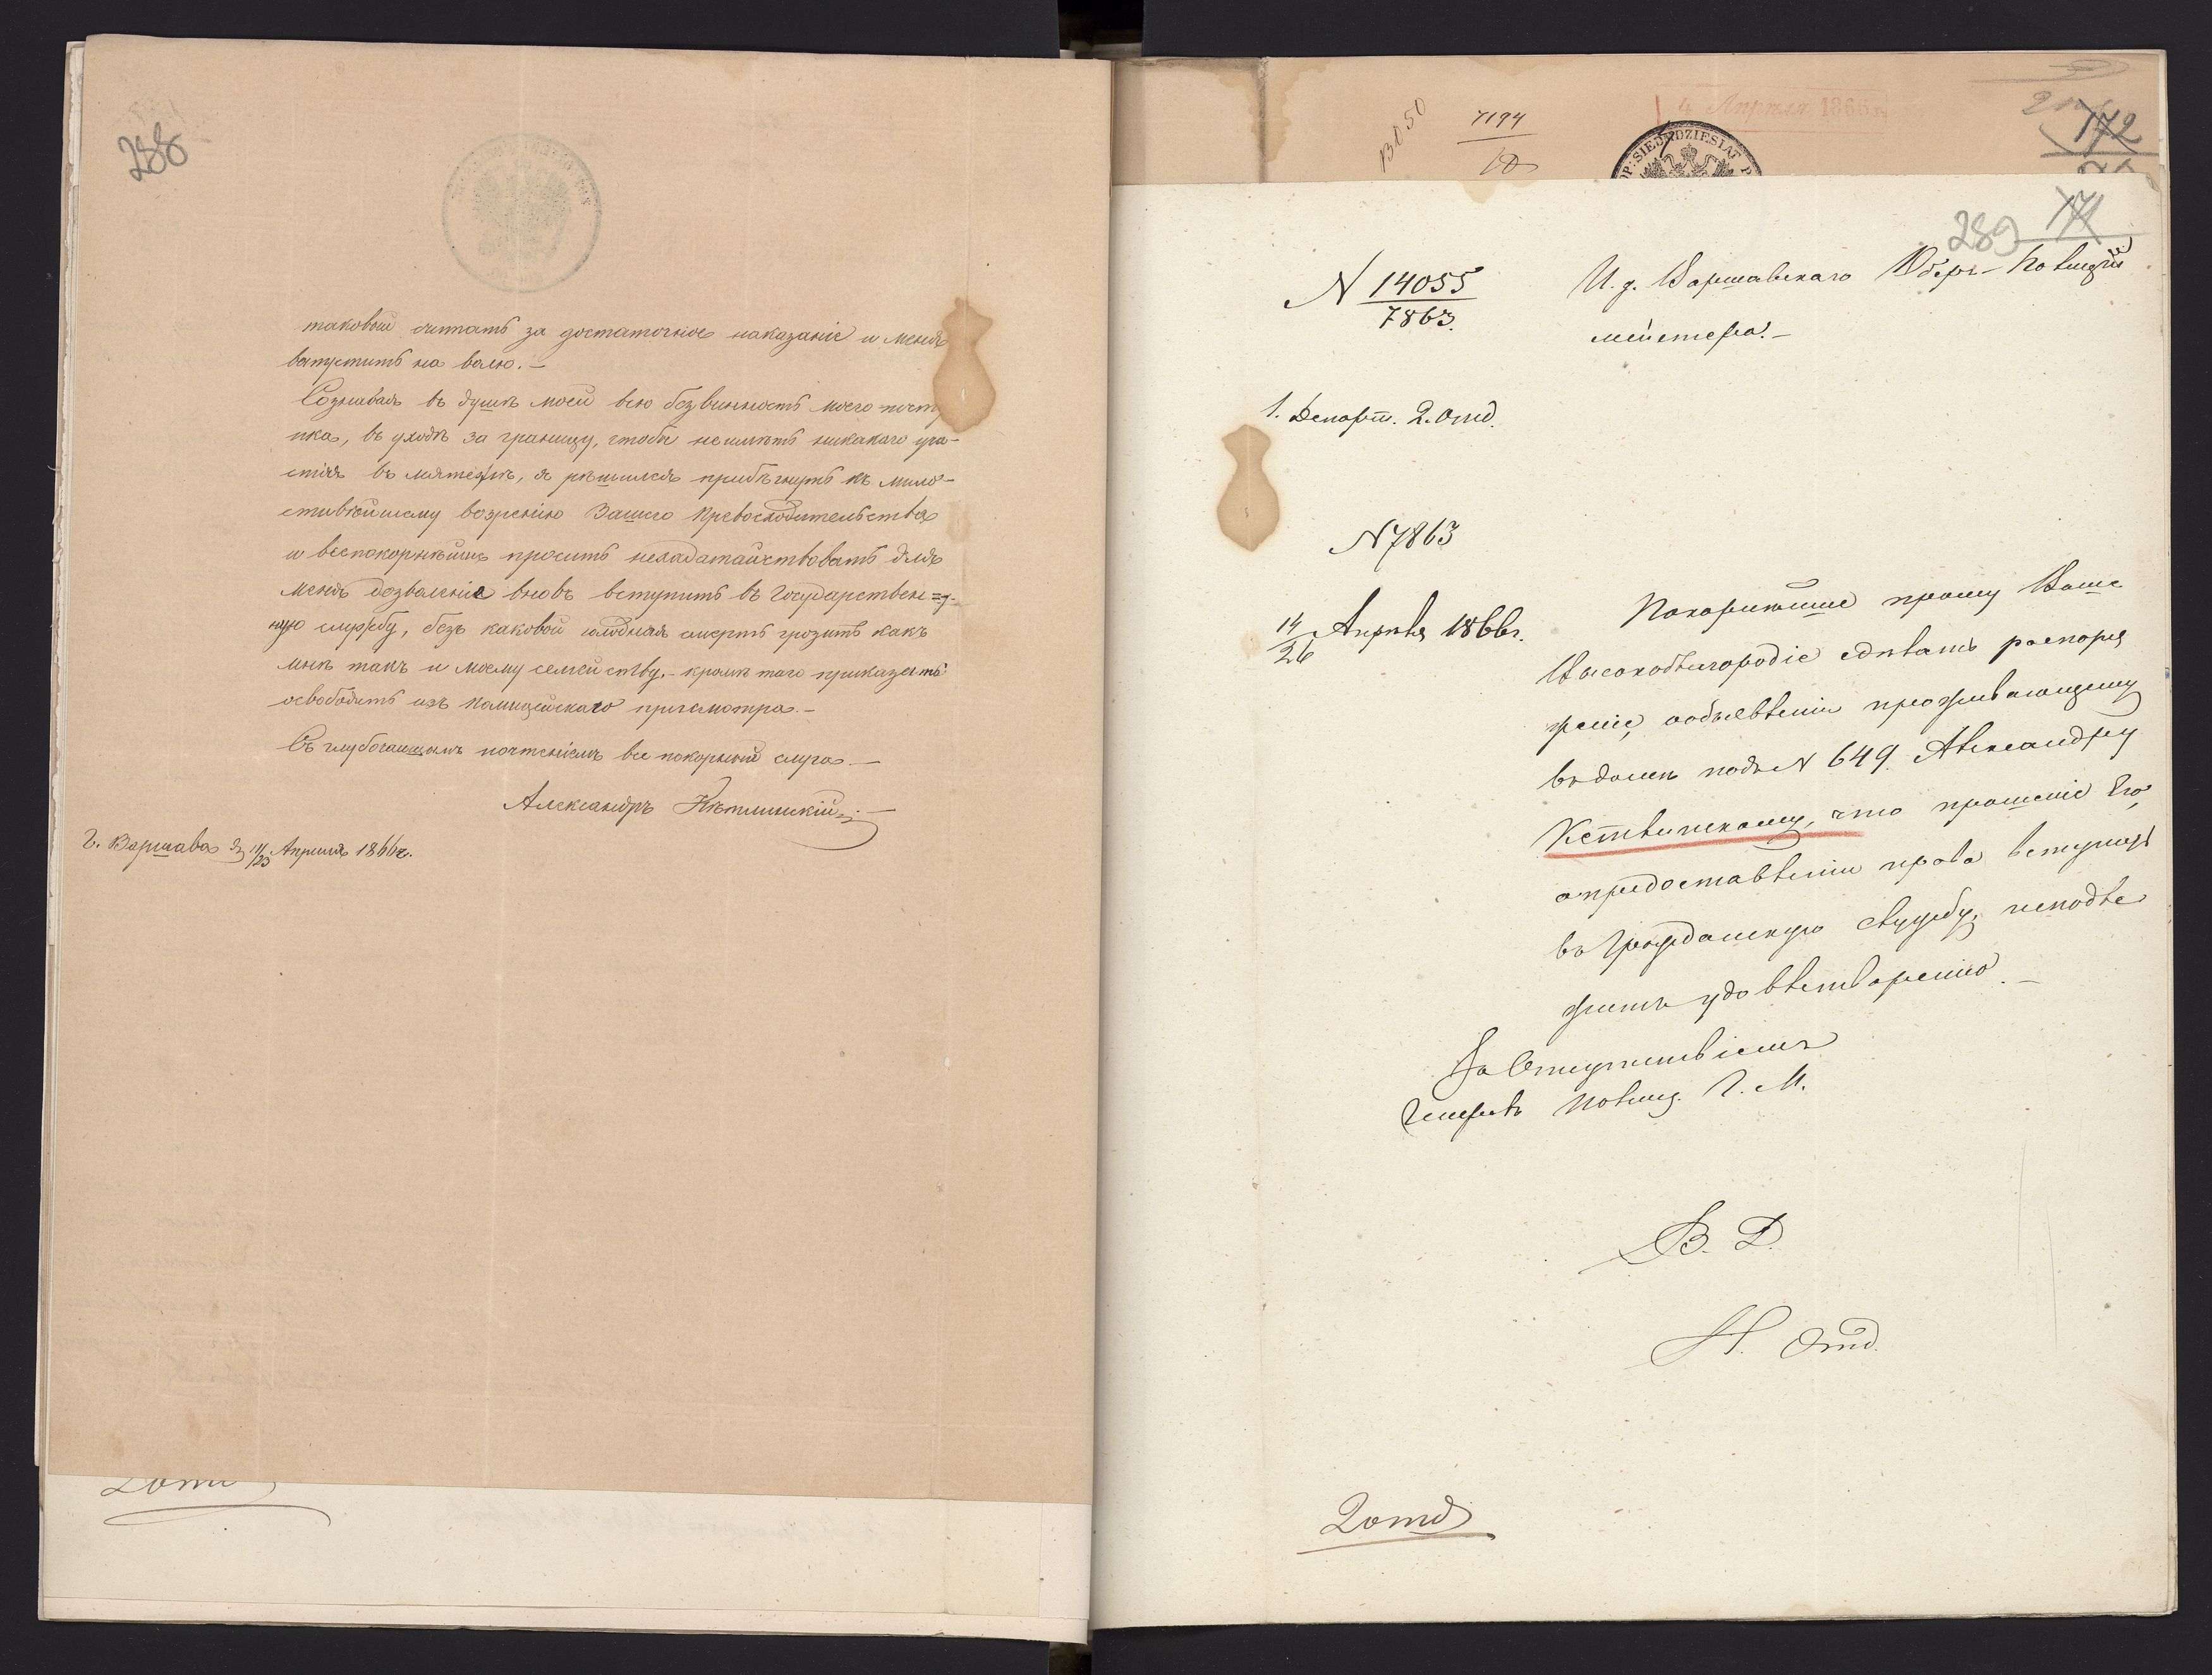 288
таковой считать за достаточное наказаніе и меня
выпустить на волю. —
Сознавая въ душѣ моей всю безвинность моего посту
пка, въ уходѣ за границу, чтобы неимѣть никакаго уча-
стія въ мятежѣ, я рѣшился прибѣгнуть къ мило-
стивѣйшему возрѣнію Вашего Превосходительства
и всепокорнѣйше просить исходатайствовать для
меня дозволеніе вновь вступить въ Государствен=
ную службу, безъ каковой голодная смерть грозитъ какъ
мнѣ такъ и моему семейству, — кромѣ того приказать
освободить изъ полицейскаго присмотра. —
Съ глубочайшимъ почтеніемъ все покорный слуга —
Александръ Кѣтлинскій. —
Г. Варшава 11/23 Апрѣля 1866 г.
2 отд
13050
7194
4 Апрѣля 1866
SIEDMDZIESIAT
172
171
289
N 14055
7863.
И. д. Варшавскаго Оберъ-Полицій
мейстера. —
1. Департ. 2. Отд.
N 7863
14/26 Апрѣля 1866 г.
Покорнѣйше прошу Ваше
Высокоблагородіе сдѣлать распоря
женіе, объявленіи проживающему
въ домѣ подъ N 649. Александру
Кетлинскому, что прошеніе Его,
о предоставленіи права вступить
въ Гражданскую службу, неподле
житъ удовлетворенію. —
За Отсутствіемъ
Генералъ Полиц. Г. М.
В. Д.
Н. Отд.
2 отд